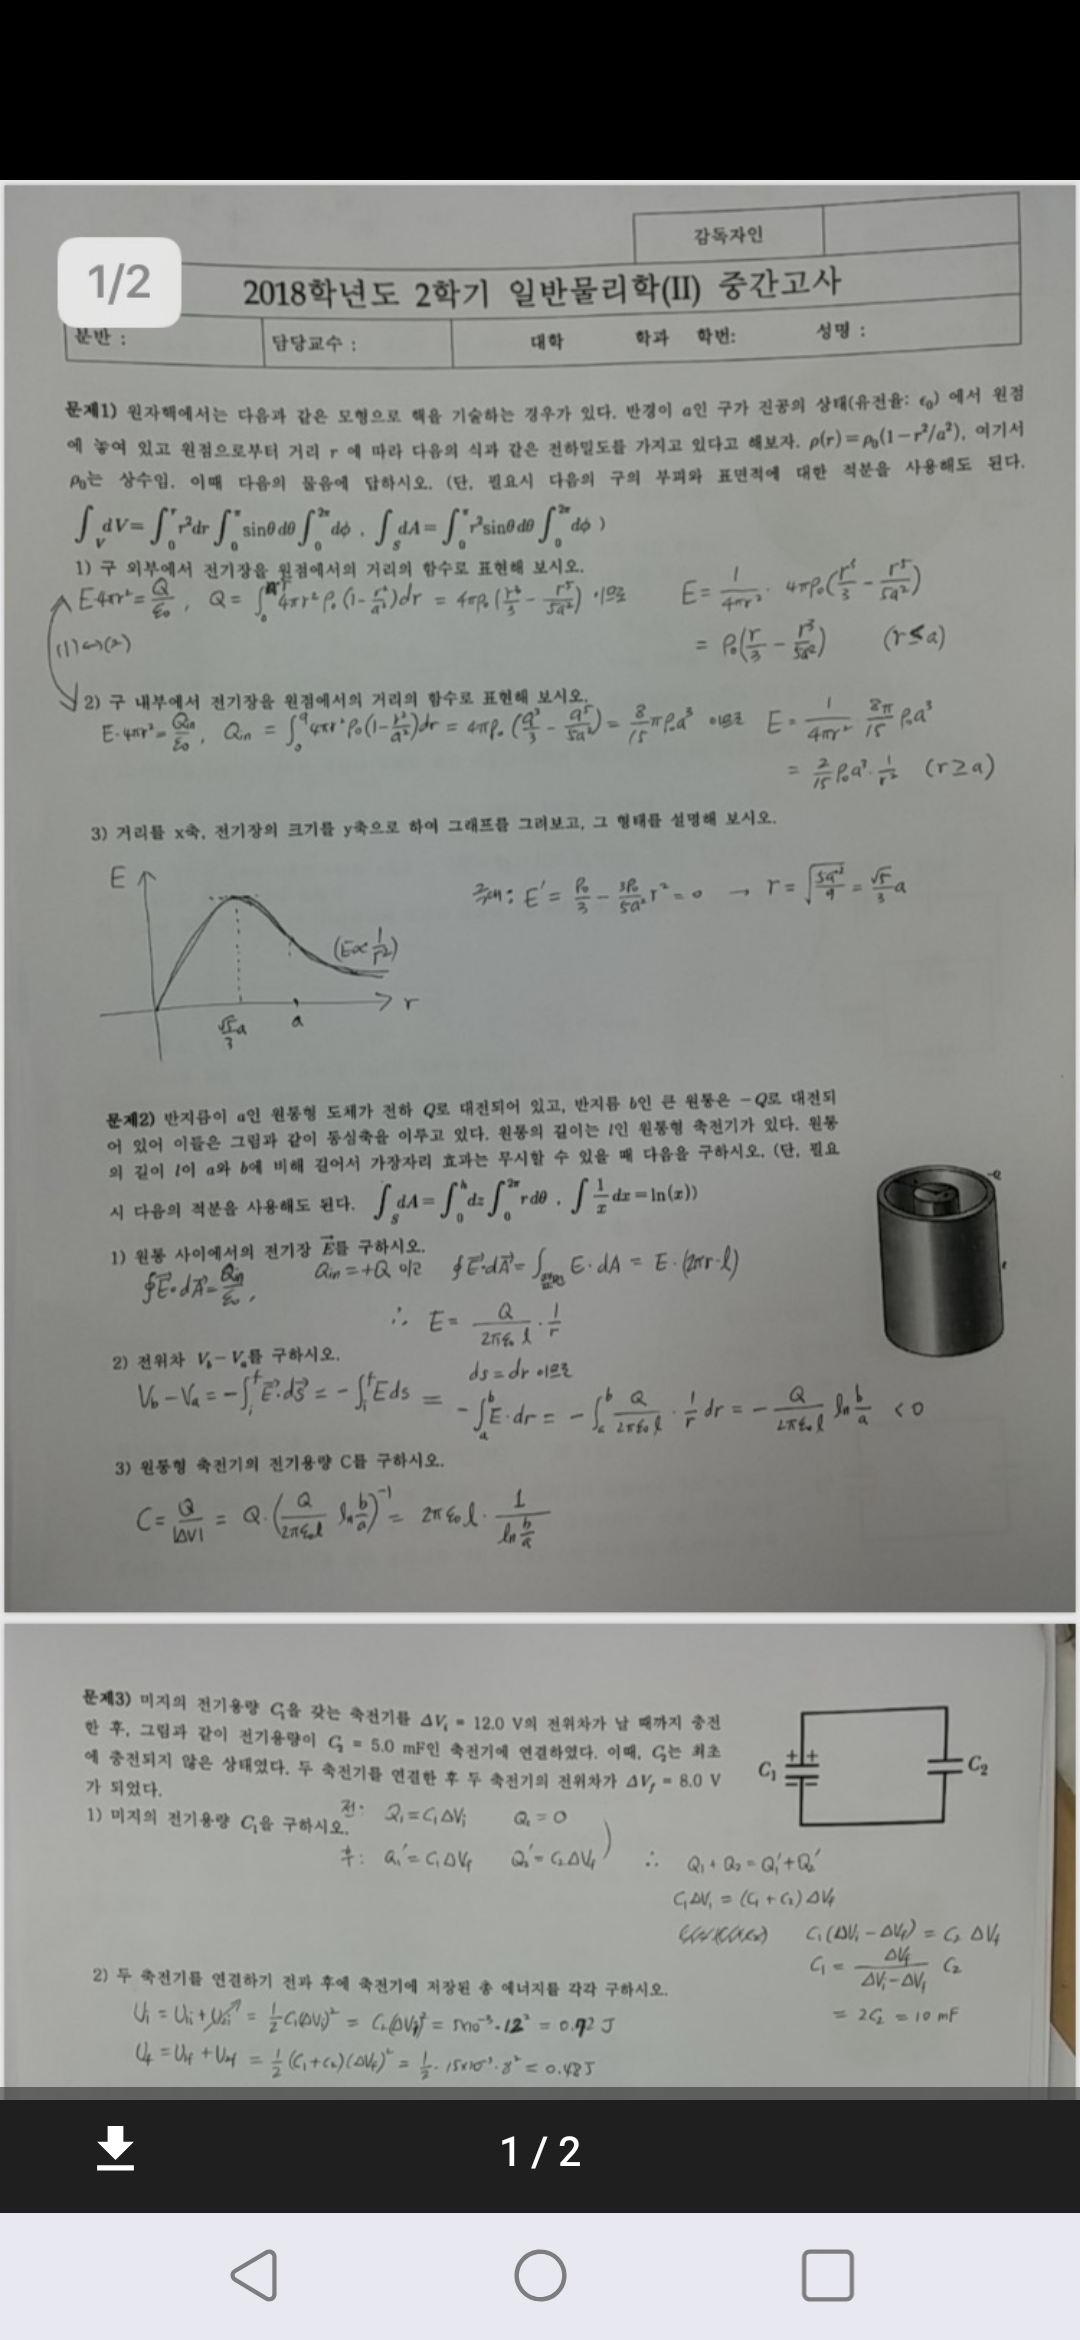 감독자인
1/2
2018학년도 2학기 일반물리학(II) 중간고사
분반 : 담당교수 : 대학 학과 학번: 성명 :
문제1) 원자핵에서는 다음과 같은 모형으로 핵을 기술하는 경우가 있다. 반경이 a인 구가 진공의 상태(유전율: ϵ₀) 에서 원점
에 놓여 있고 원점으로부터 거리 r 에 따라 다음의 식과 같은 전하밀도를 가지고 있다고 해보자. ρ(r)=ρ₀(1−r²/a²). 여기서
ρ₀는 상수임. 이때 다음의 물음에 답하시오. (단, 필요시 다음의 구의 부피와 표면적에 대한 적분을 사용해도 된다.
∫_V dV=∫₀^r r²dr ∫₀^π sinθdθ ∫₀^2π dϕ , ∫_S dA=∫₀^π r²sinθdθ ∫₀^2π dϕ )
1) 구 외부에서 전기장을 원점에서의 거리의 함수로 표현해 보시오.
E·4πr² = Q/ε₀, Q = ∫₀^r 4πr²ρ₀(1-r²/a²)dr = 4πρ₀(r³/3 - r⁵/5a²) 이므로 E = 1/4πr² · 4πρ₀(r³/3 - r⁵/5a²)
(1)↔(2) = ρ₀(r/3 - r³/5a²) (r≤a)
2) 구 내부에서 전기장을 원점에서의 거리의 함수로 표현해 보시오.
E·4πr² = Qin/ε₀, Qin = ∫₀^a 4πr²ρ₀(1-r²/a²)dr = 4πρ₀(a³/3 - a⁵/5a²) = 8/15 πρ₀a³ 이므로 E = 1/4πr² · 8π/15 ρ₀a³
= 2/15 ρ₀a³ · 1/r² (r≥a)
3) 거리를 x축, 전기장의 크기를 y축으로 하여 그래프를 그려보고, 그 형태를 설명해 보시오.
E
극대: E' = ρ₀/3 - 3ρ₀/5a² r² = 0 → r = √(5a²/9) = √5/3 a
(E∝1/r²)
r
√5/3 a a
문제2) 반지름이 a인 원통형 도체가 전하 Q로 대전되어 있고, 반지름 b인 큰 원통은 −Q로 대전되
어 있어 이들은 그림과 같이 동심축을 이루고 있다. 원통의 길이는 l인 원통형 축전기가 있다. 원통
의 길이 l이 a와 b에 비해 길어서 가장자리 효과는 무시할 수 있을 때 다음을 구하시오. (단, 필요
시 다음의 적분을 사용해도 된다. ∫_S dA=∫₀^h dz ∫₀^2π rdθ , ∫ 1/x dx=ln(x))
-Q
1) 원통 사이에서의 전기장 E⃗를 구하시오.
∮E⃗·dA⃗ = Qin/ε₀, Qin = +Q 이고 ∮E⃗·dA⃗ = ∫ E·dA = E·(2πr·l)
∴ E = Q/2πε₀l · 1/r
2) 전위차 V_b − V_a를 구하시오.
ds = dr 이므로
Vb - Va = -∫ᵢ^f E⃗·ds⃗ = -∫ᵢ^f E ds = -∫ₐ^b E·dr = -∫ₐ^b Q/2πε₀l · 1/r dr = - Q/2πε₀l ln b/a < 0
3) 원통형 축전기의 전기용량 C를 구하시오.
C = Q/|ΔV| = Q·(Q/2πε₀l ln b/a)⁻¹ = 2πε₀l · 1/ln b/a
문제3) 미지의 전기용량 C₁을 갖는 축전기를 ΔVᵢ = 12.0 V의 전위차가 날 때까지 충전
한 후, 그림과 같이 전기용량이 C₂ = 5.0 mF인 축전기에 연결하였다. 이때, C₂는 최초
에 충전되지 않은 상태였다. 두 축전기를 연결한 후 두 축전기의 전위차가 ΔV_f = 8.0 V
가 되었다.
C₁ ++ C₂
1) 미지의 전기용량 C₁을 구하시오.
전: Q₁=C₁ΔVᵢ Q₂=0
후: Q₁'=C₁ΔV_f Q₂'=C₂ΔV_f ∴ Q₁+Q₂=Q₁'+Q₂'
C₁ΔVᵢ = (C₁+C₂)ΔV_f
C₁(ΔVᵢ-ΔV_f) = C₂ ΔV_f
C₁ = ΔV_f/(ΔVᵢ-ΔV_f) C₂
= 2C₂ = 10 mF
2) 두 축전기를 연결하기 전과 후에 축전기에 저장된 총 에너지를 각각 구하시오.
Uᵢ = U₁ᵢ+U₂ᵢ = 1/2 C₁(ΔVᵢ)² = C₂(ΔVᵢ)² = 5×10⁻³·12² = 0.72 J
U_f = U₁f + U₂f = 1/2 (C₁+C₂)(ΔV_f)² = 1/2 · 15×10⁻³·8² = 0.48J
1 / 2